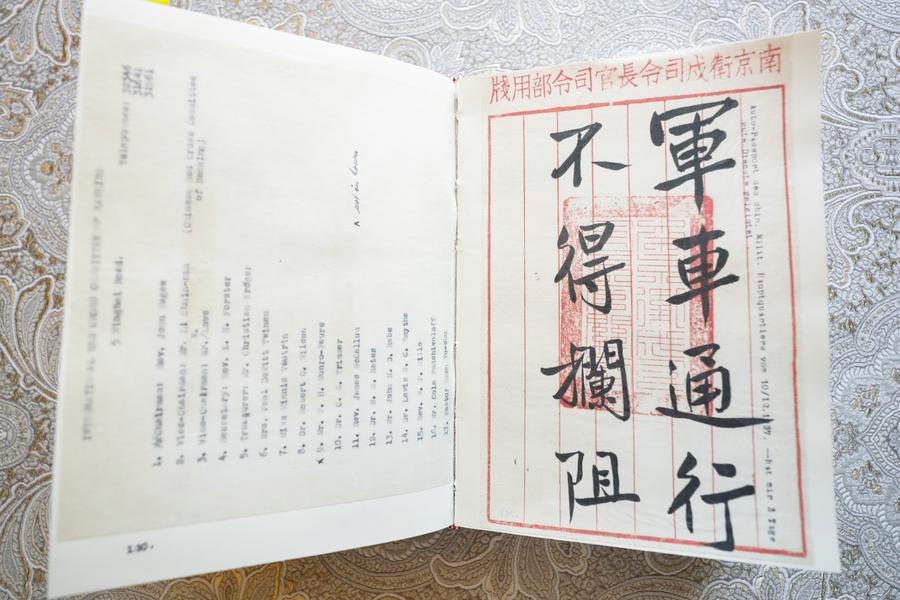 5 Ninghai Road.
Telephones:
(Chinese Red Cross Committee
of Nanking)
1. Chairman: Rev. John Magee
2. Vice-Chairman: Mr. Li Chuin-nan
3. Vice-Chairman: Mr. Lowe
4. Secretary: Rev. E. H. Forster
5. Treasurer: Mr. Christian Kröger
6. Mrs. Paul DeWitt Twinem
7. Miss Minnie Vautrin
8. Dr. Robert O. Wilson
x 9. Mr. P. H. Munro-Faure
10. Dr. C. S. Trimmer
11. Rev. James McCallum
12. Dr. M. S. Bates
13. Mr. John H. D. Rabe
14. Dr. Lewis S. C. Smythe
15. Rev. W. P. Mills
16. Mr. Cola Podshivoloff
17. Pastor Shen Yu-shu
x not in town
130.
南京衛戍司令長官司令部用牋
Auto-Passport des chin. Milit. Hauptquartiers vom 10/12.1937. --hat mir 3 Tage
gute Dienste geleistet
軍車通行
不得攔阻